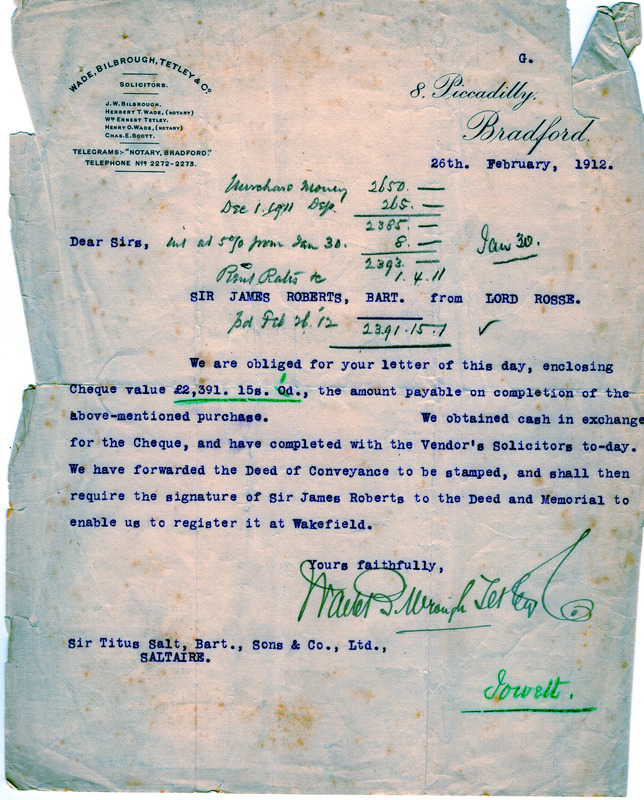 G.
WADE, BILBROUGH, TETLEY & Co.
SOLICITORS.
J. W. BILBROUGH.
HERBERT T. WADE, (NOTARY)
Wm ERNEST TETLEY.
HENRY G. WADE, (NOTARY)
CHAS. E. SCOTT.
TELEGRAMS:- "NOTARY, BRADFORD."
TELEPHONE Nos 2272-2273.
8, Piccadilly,
Bradford.
26th. February, 1912.
Purchase Money 2650. —
Dec 1. 1911 Dep. 265. —
2385. —
Dear Sirs, int at 5% from Jan 30. 8. — Jan 30.
2393. —
Rent Rates &c 1. 4. 11
SIR JAMES ROBERTS, BART. from LORD ROSSE.
pd Feb 26.'12 2391. 15. 1 ✓
We are obliged for your letter of this day, enclosing
Cheque value £2,391. 15s. 0d., the amount payable on completion of the
above-mentioned purchase. We obtained cash in exchange
for the Cheque, and have completed with the Vendor's Solicitors to-day.
We have forwarded the Deed of Conveyance to be stamped, and shall then
require the signature of Sir James Roberts to the Deed and Memorial to
enable us to register it at Wakefield.
Yours faithfully,
Wade Bilbrough Tetley & Co
Sir Titus Salt, Bart., Sons & Co., Ltd.,
SALTAIRE.
Jowett.